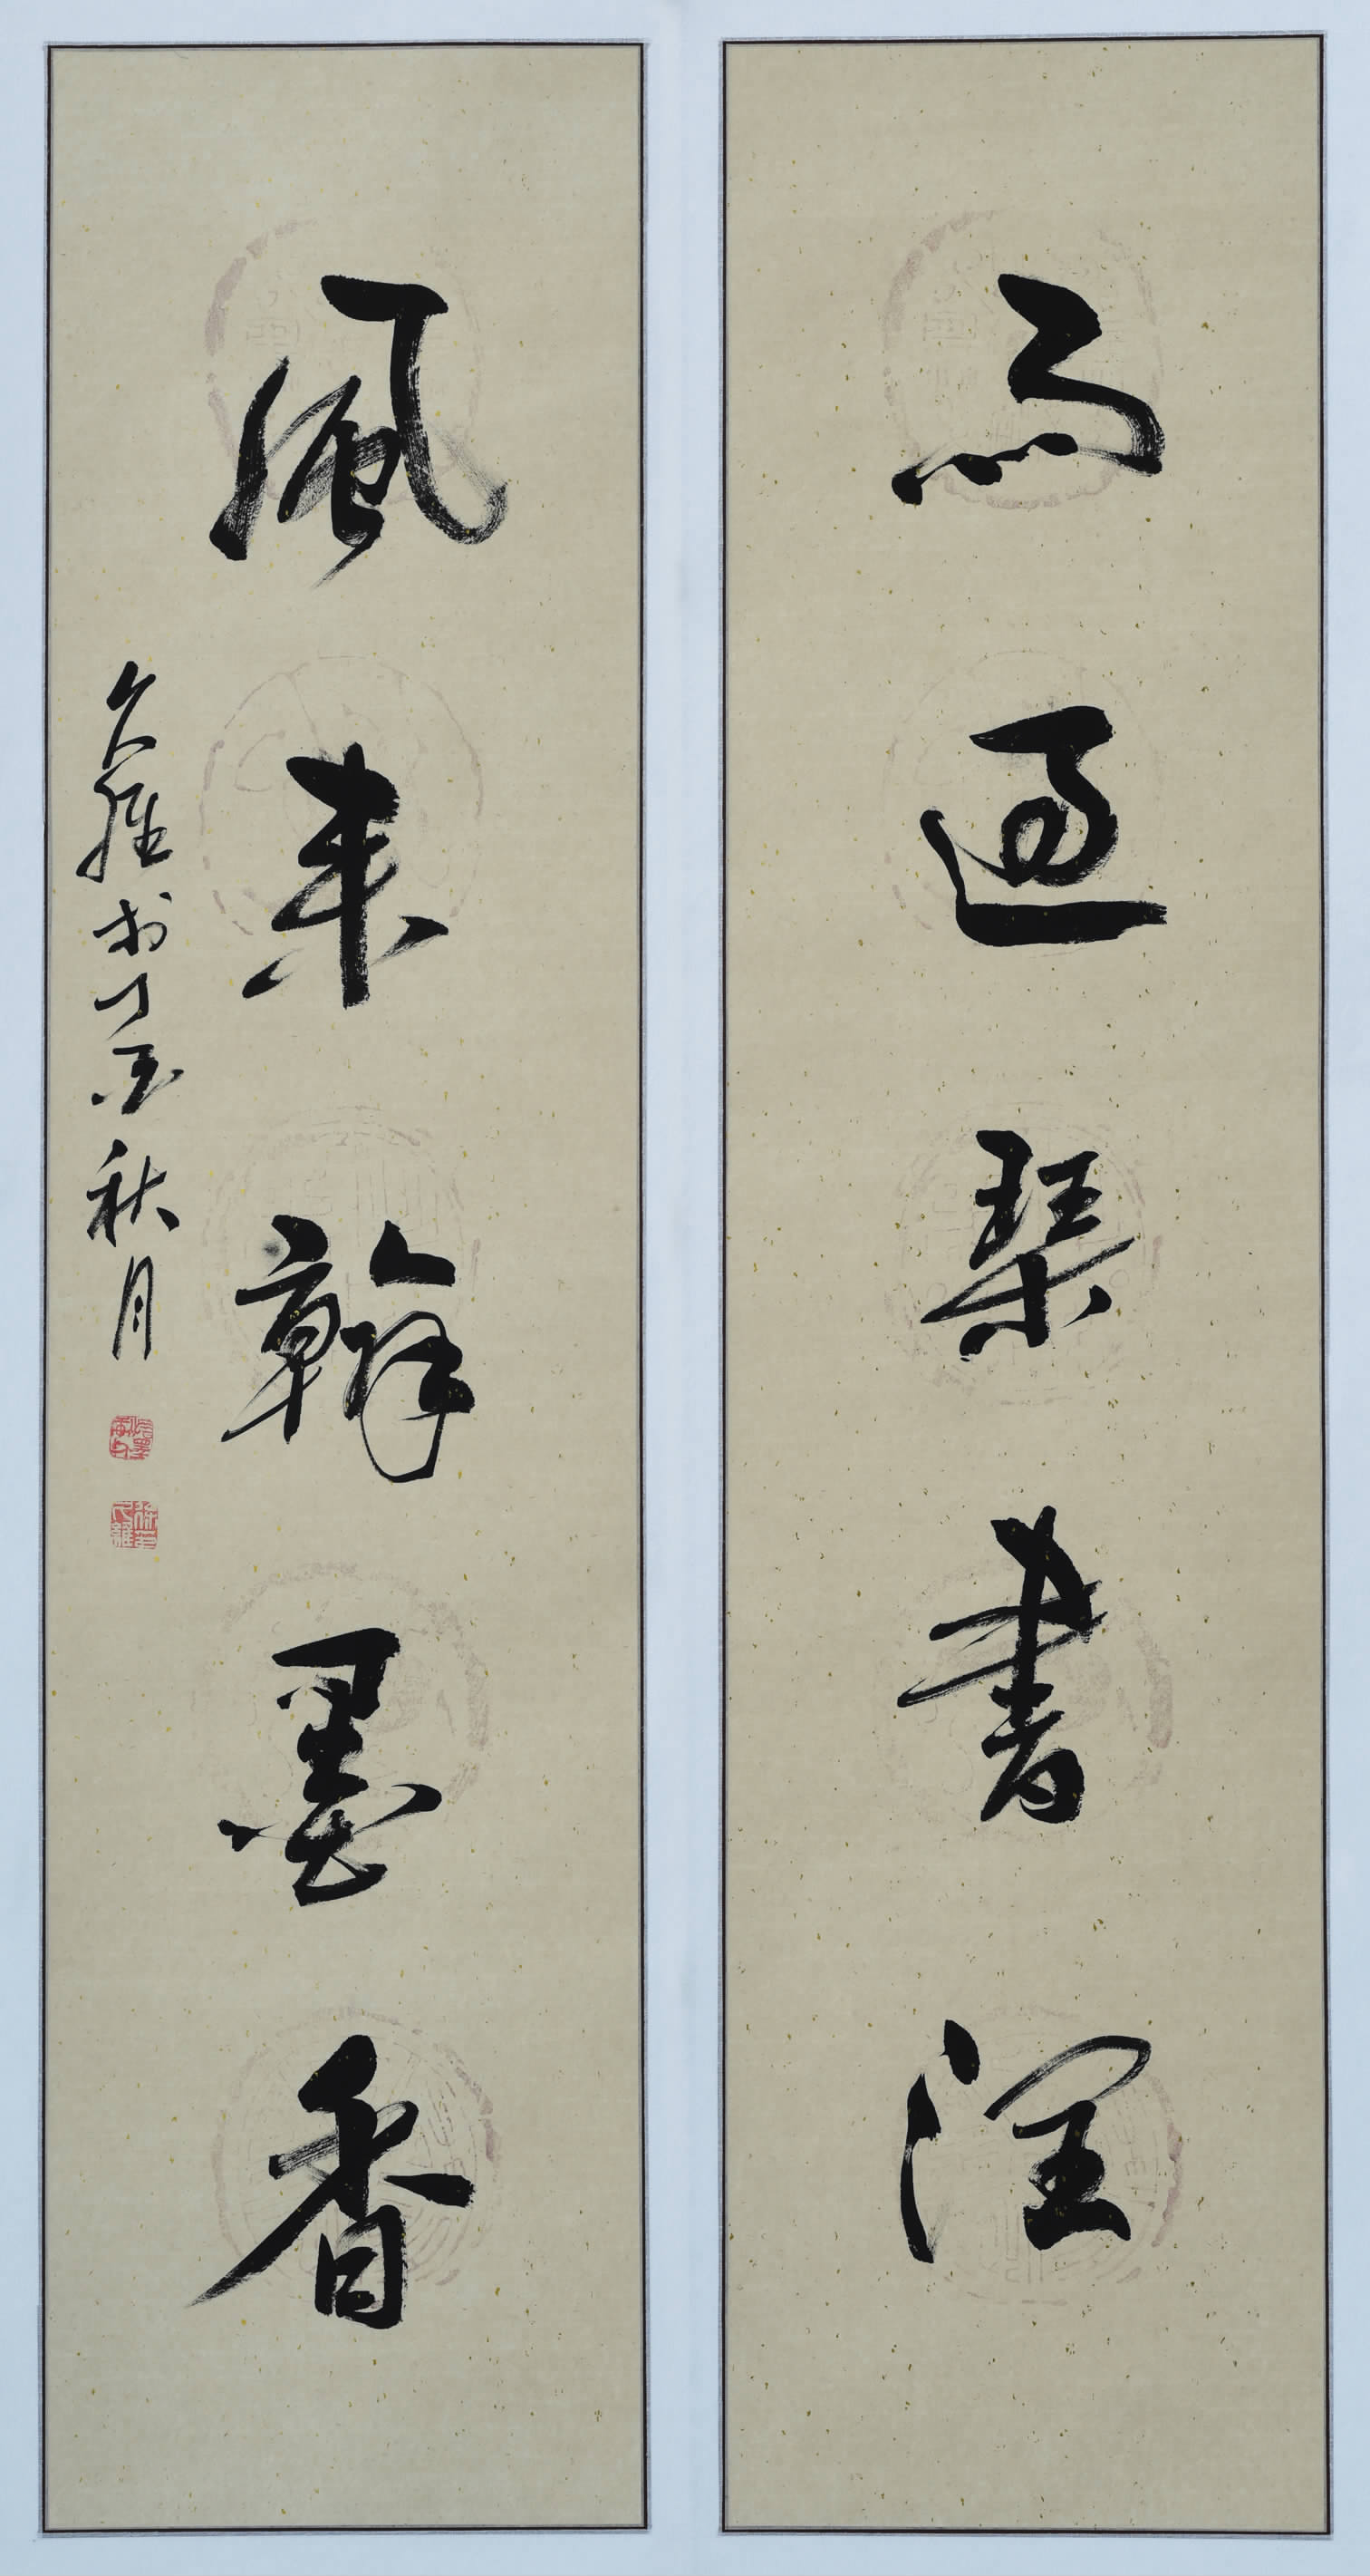 雨過琴書潤
風來翰墨香
久雄书丁酉秋月